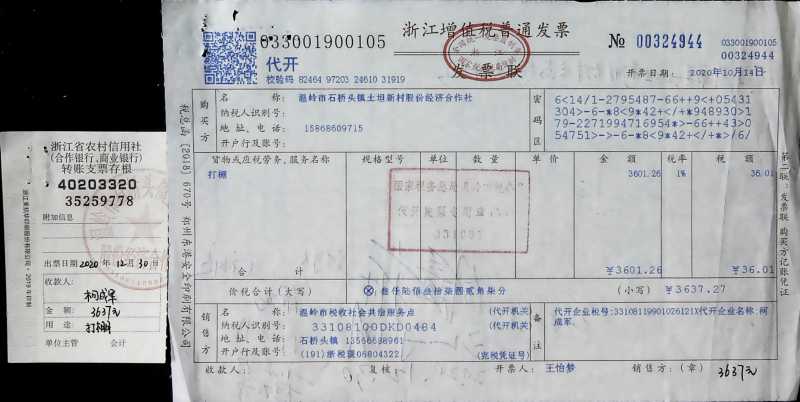 浙江省农村信用社
(合作银行、商业银行)
转账支票存根
40203320
35259778
附加信息
出票日期 2020 年 12 月 30 日
收款人:
柯成军
金 额: 3637元
用 途: 打棚
单位主管 会计
033001900105
浙江增值税普通发票
№ 00324944
033001900105
00324944
代开
发 票 联
校验码 82464 97203 24610 31919
开票日期: 2020年10月14日
购买方
名 称: 温岭市石桥头镇土坦新村股份经济合作社
纳税人识别号:
地 址、电 话: 15868609715
开户行及账号:
密码区
6<14/1-2795487-66++9<+05431
304>-6-*8<9*42+</+*948930>1
79-2271994716954*>-66++43>0
54751>->-6-*8<9*42+</+*>/6/
货物或应税劳务、服务名称 规格型号 单位 数 量 单 价 金 额 税率 税 额
打棚 3601.26 1% 36.01
代开发票专用章
合 计 ￥3601.26 ￥36.01
价税合计(大写) ⊗ 叁仟陆佰叁拾柒圆贰角柒分 (小写) ￥3637.27
销售方
名 称: 温岭市税收社会共治服务点 (代开机关)
纳税人识别号: 33108100DKD0484 (代开机关)
地 址、电 话: 石桥头镇 13566698961
开户行及账号: (191)浙税簇06804322 (完税凭证号)
备注
代开企业税号:33108119901026121X代开企业名称:柯
成军.
收款人: 复核: 开票人: 王怡梦 销售方:(章) 3637元
税总函 [2018] 670号 郑州东港安全印刷有限公司
第二联:发票联 购买方记账凭证